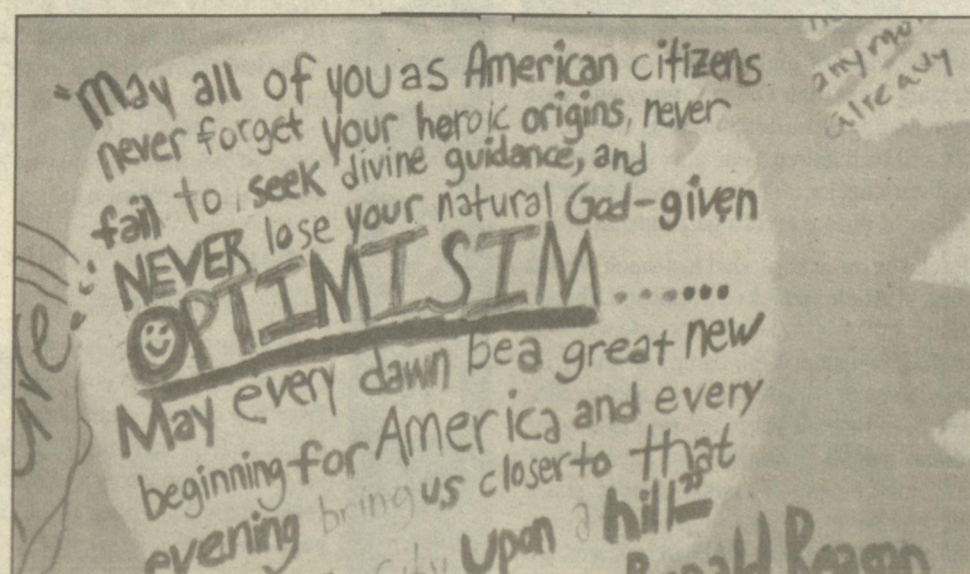 "May all of you as American citizens
never forget your heroic origins, never
fail to seek divine guidance, and
NEVER lose your natural God-given
OPTIMISIM.......
May every dawn be a great new
beginning for America and every
evening bring us closer to that
City upon a hill"
Ronald Reagan
any mo
alreavy